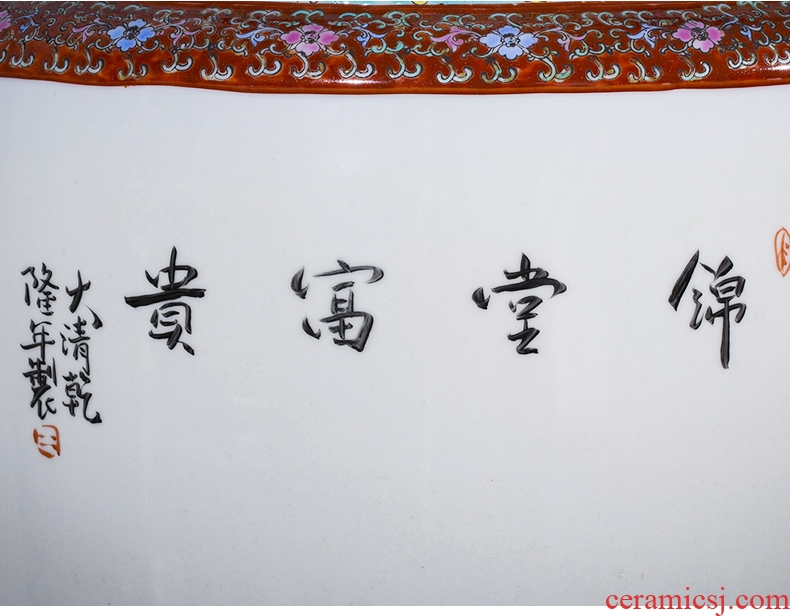 錦堂富貴
大清乾
隆年製
ceramicsj.com